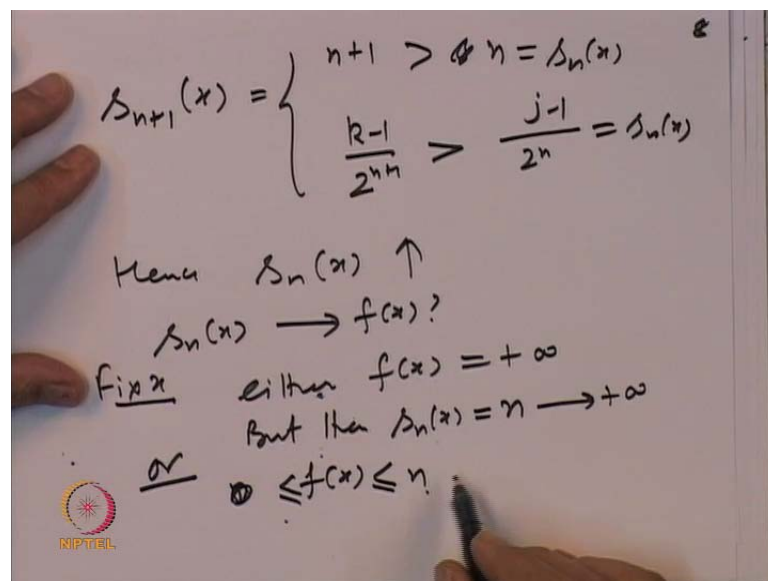 s_{n+1}(x) = { n+1 > n = s_n(x)
k-1 / 2^{n+1} > j-1 / 2^n = s_n(x)
Hence s_n(x) ↑
s_n(x) → f(x)?
Fix x either f(x) = +∞
But then s_n(x) = n → +∞
or 0 ≤ f(x) ≤ n.
NPTEL